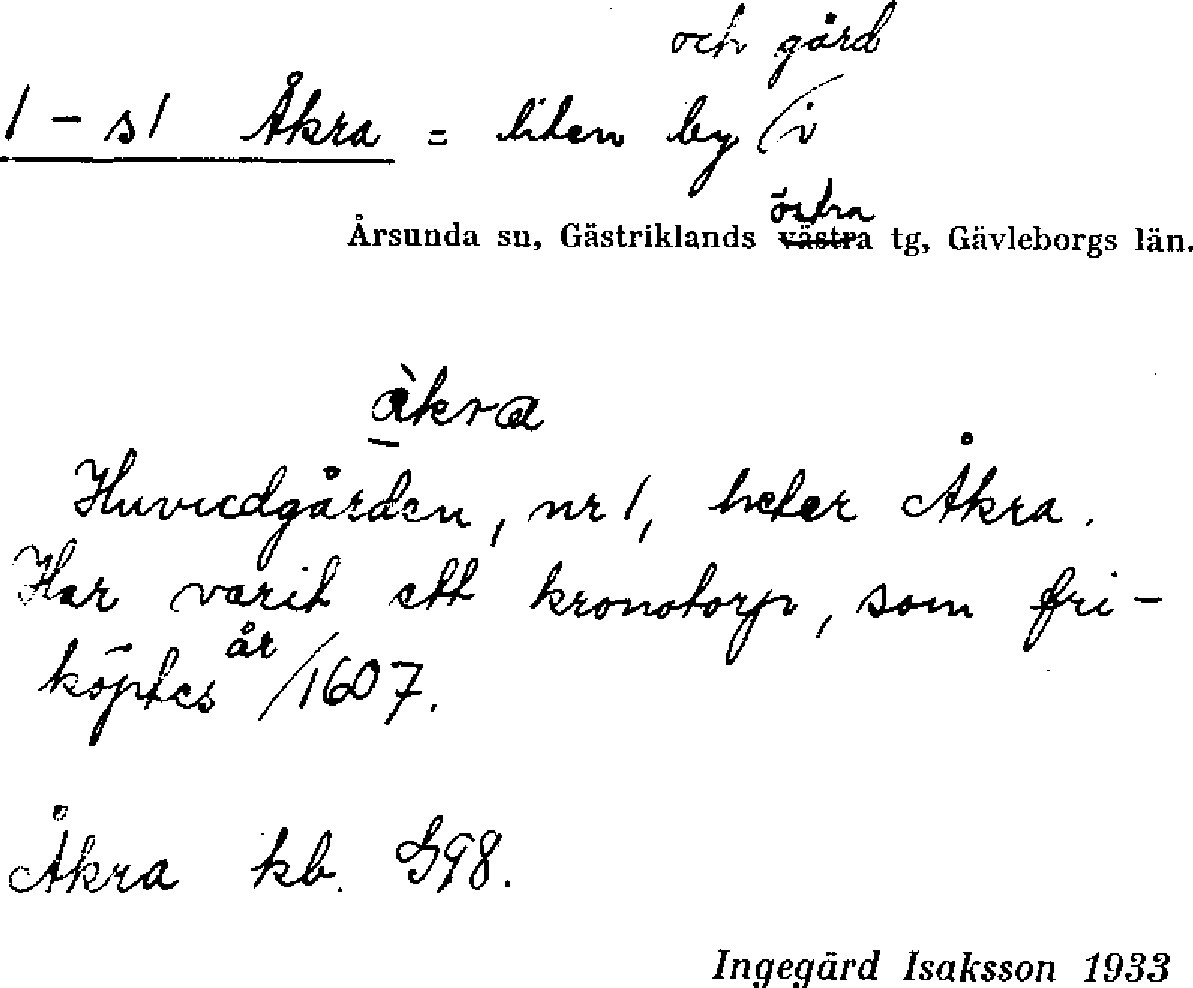 och gård
1 - s1 Åkra = liten by / i
östra
Årsunda sn, Gästriklands västra tg, Gävleborgs län.
àkra
Huvudgården, nr 1, heter Åkra.
Har varit ett kronotorp, som fri-
år
köptes / 1607.
Åkra kb. S98.
Ingegärd Isaksson 1933